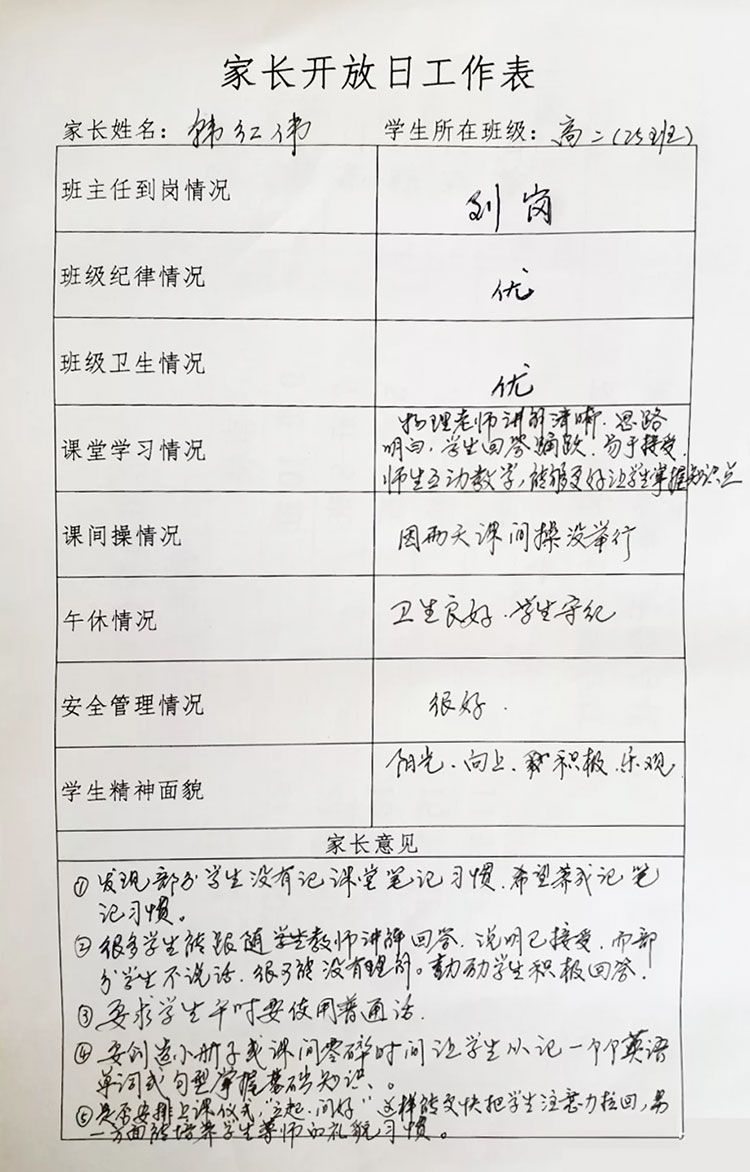 家长开放日工作表
家长姓名：韩红伟 学生所在班级：高二(25班)
班主任到岗情况 到岗
班级纪律情况 优
班级卫生情况 优
课堂学习情况
物理老师讲解清晰.思路
明白,学生回答踊跃.易于接受.
师生互动教学,能够更好让学生掌握知识点
课间操情况 因雨天课间操没举行
午休情况 卫生良好.学生守纪
安全管理情况 很好.
学生精神面貌 阳光、向上、积极.乐观
家长意见
①发现部分学生没有记课堂笔记习惯.希望养成记笔
记习惯。
②很多学生能跟随学生教师讲解回答.说明已接受.而部
分学生不说话.很可能没有理解。鼓励学生积极回答.
③要求学生平时要使用普通话.
④要创造小册子或课间零碎时间让学生从记一个个英语
单词或句型掌握基础知识、。
⑤是否安排上课仪式,"立起.问好"这样能更快把学生注意力拉回,另
一方面能培养学生尊师的礼貌习惯。